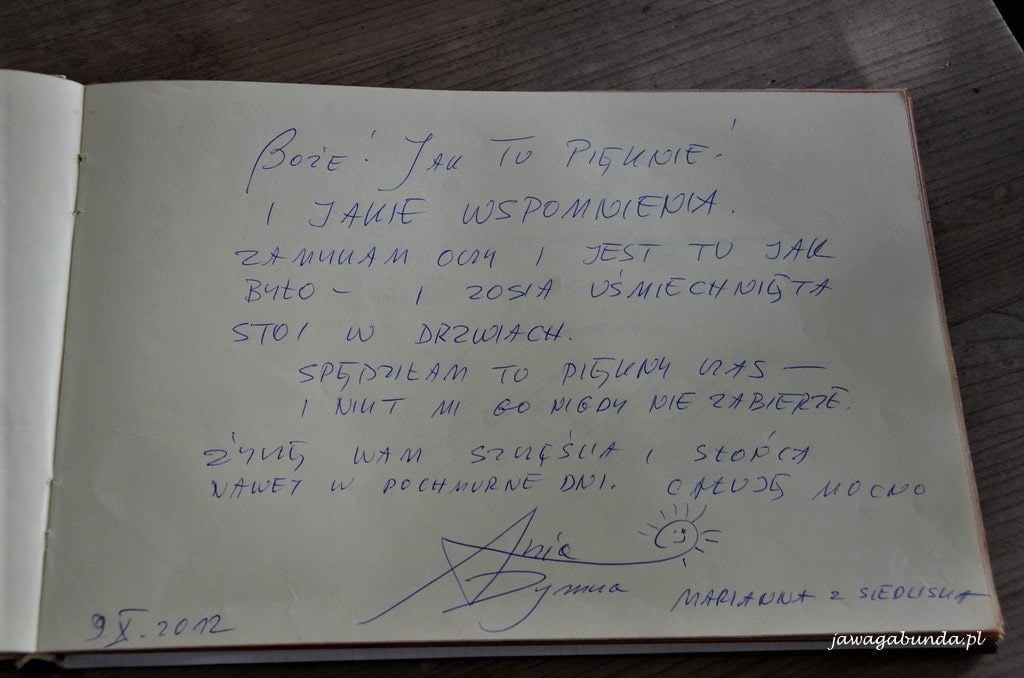 Boże! Jak tu pięknie!
I JAKIE WSPOMNIENIA.
ZAMYKAM OCZY I JEST TU JAK
BYŁO – I ZOSIA UŚMIECHNIĘTA
STOI W DRZWIACH.
SPĘDZIŁAM TU PIĘKNY CZAS —
I NIKT MI GO NIGDY NIE ZABIERZE.
ŻYCZĘ WAM SZCZĘŚCIA I SŁOŃCA
NAWET W POCHMURNE DNI. CAŁUJĘ MOCNO
Ania
Dymna
MARIANNA Z SIEDLISKA
9.X.2012
jawagabunda.pl